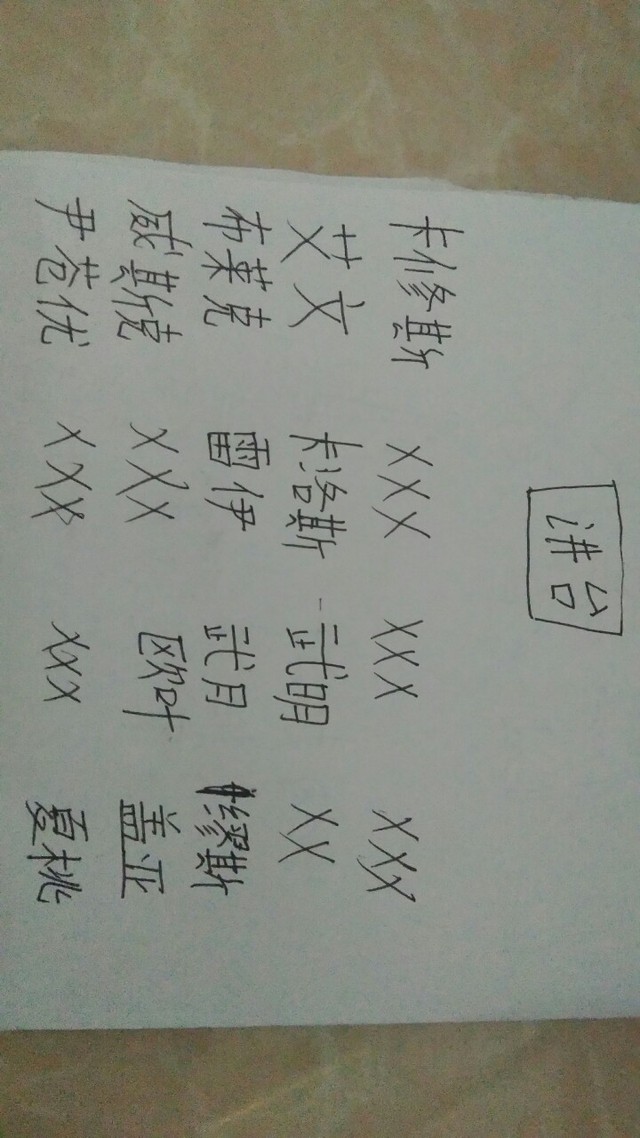 讲台
卡修斯 XXX XXX XXX
艾文 卡洛斯 武明 XX
布莱克 雷伊 武月 缪斯
威斯克 XXX 欧叶 盖亚
尹苍优 XXX XXX 夏桃